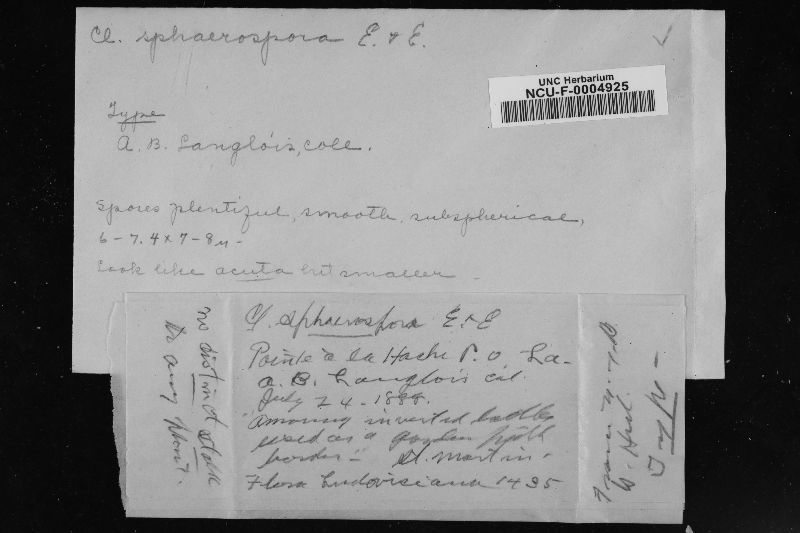 Cl. sphaerospora E. & E.
UNC Herbarium
NCU-F-0004925
Type
A. B. Langlois, coll.
Spores plentiful, smooth, subspherical,
6 - 7.4 x 7 - 8µ -
Look like acuta but smaller -
Cl. sphaerospora E. & E
Pointe à la Hache P.O. La-
A. B. Langlois
July 24 - 1888.
"Among inverted bottles
used as a garden
border" - St. Martin.
Flora Ludoviciana 1435
no distinct stalk
to any plant.
from N.Y.
Type -